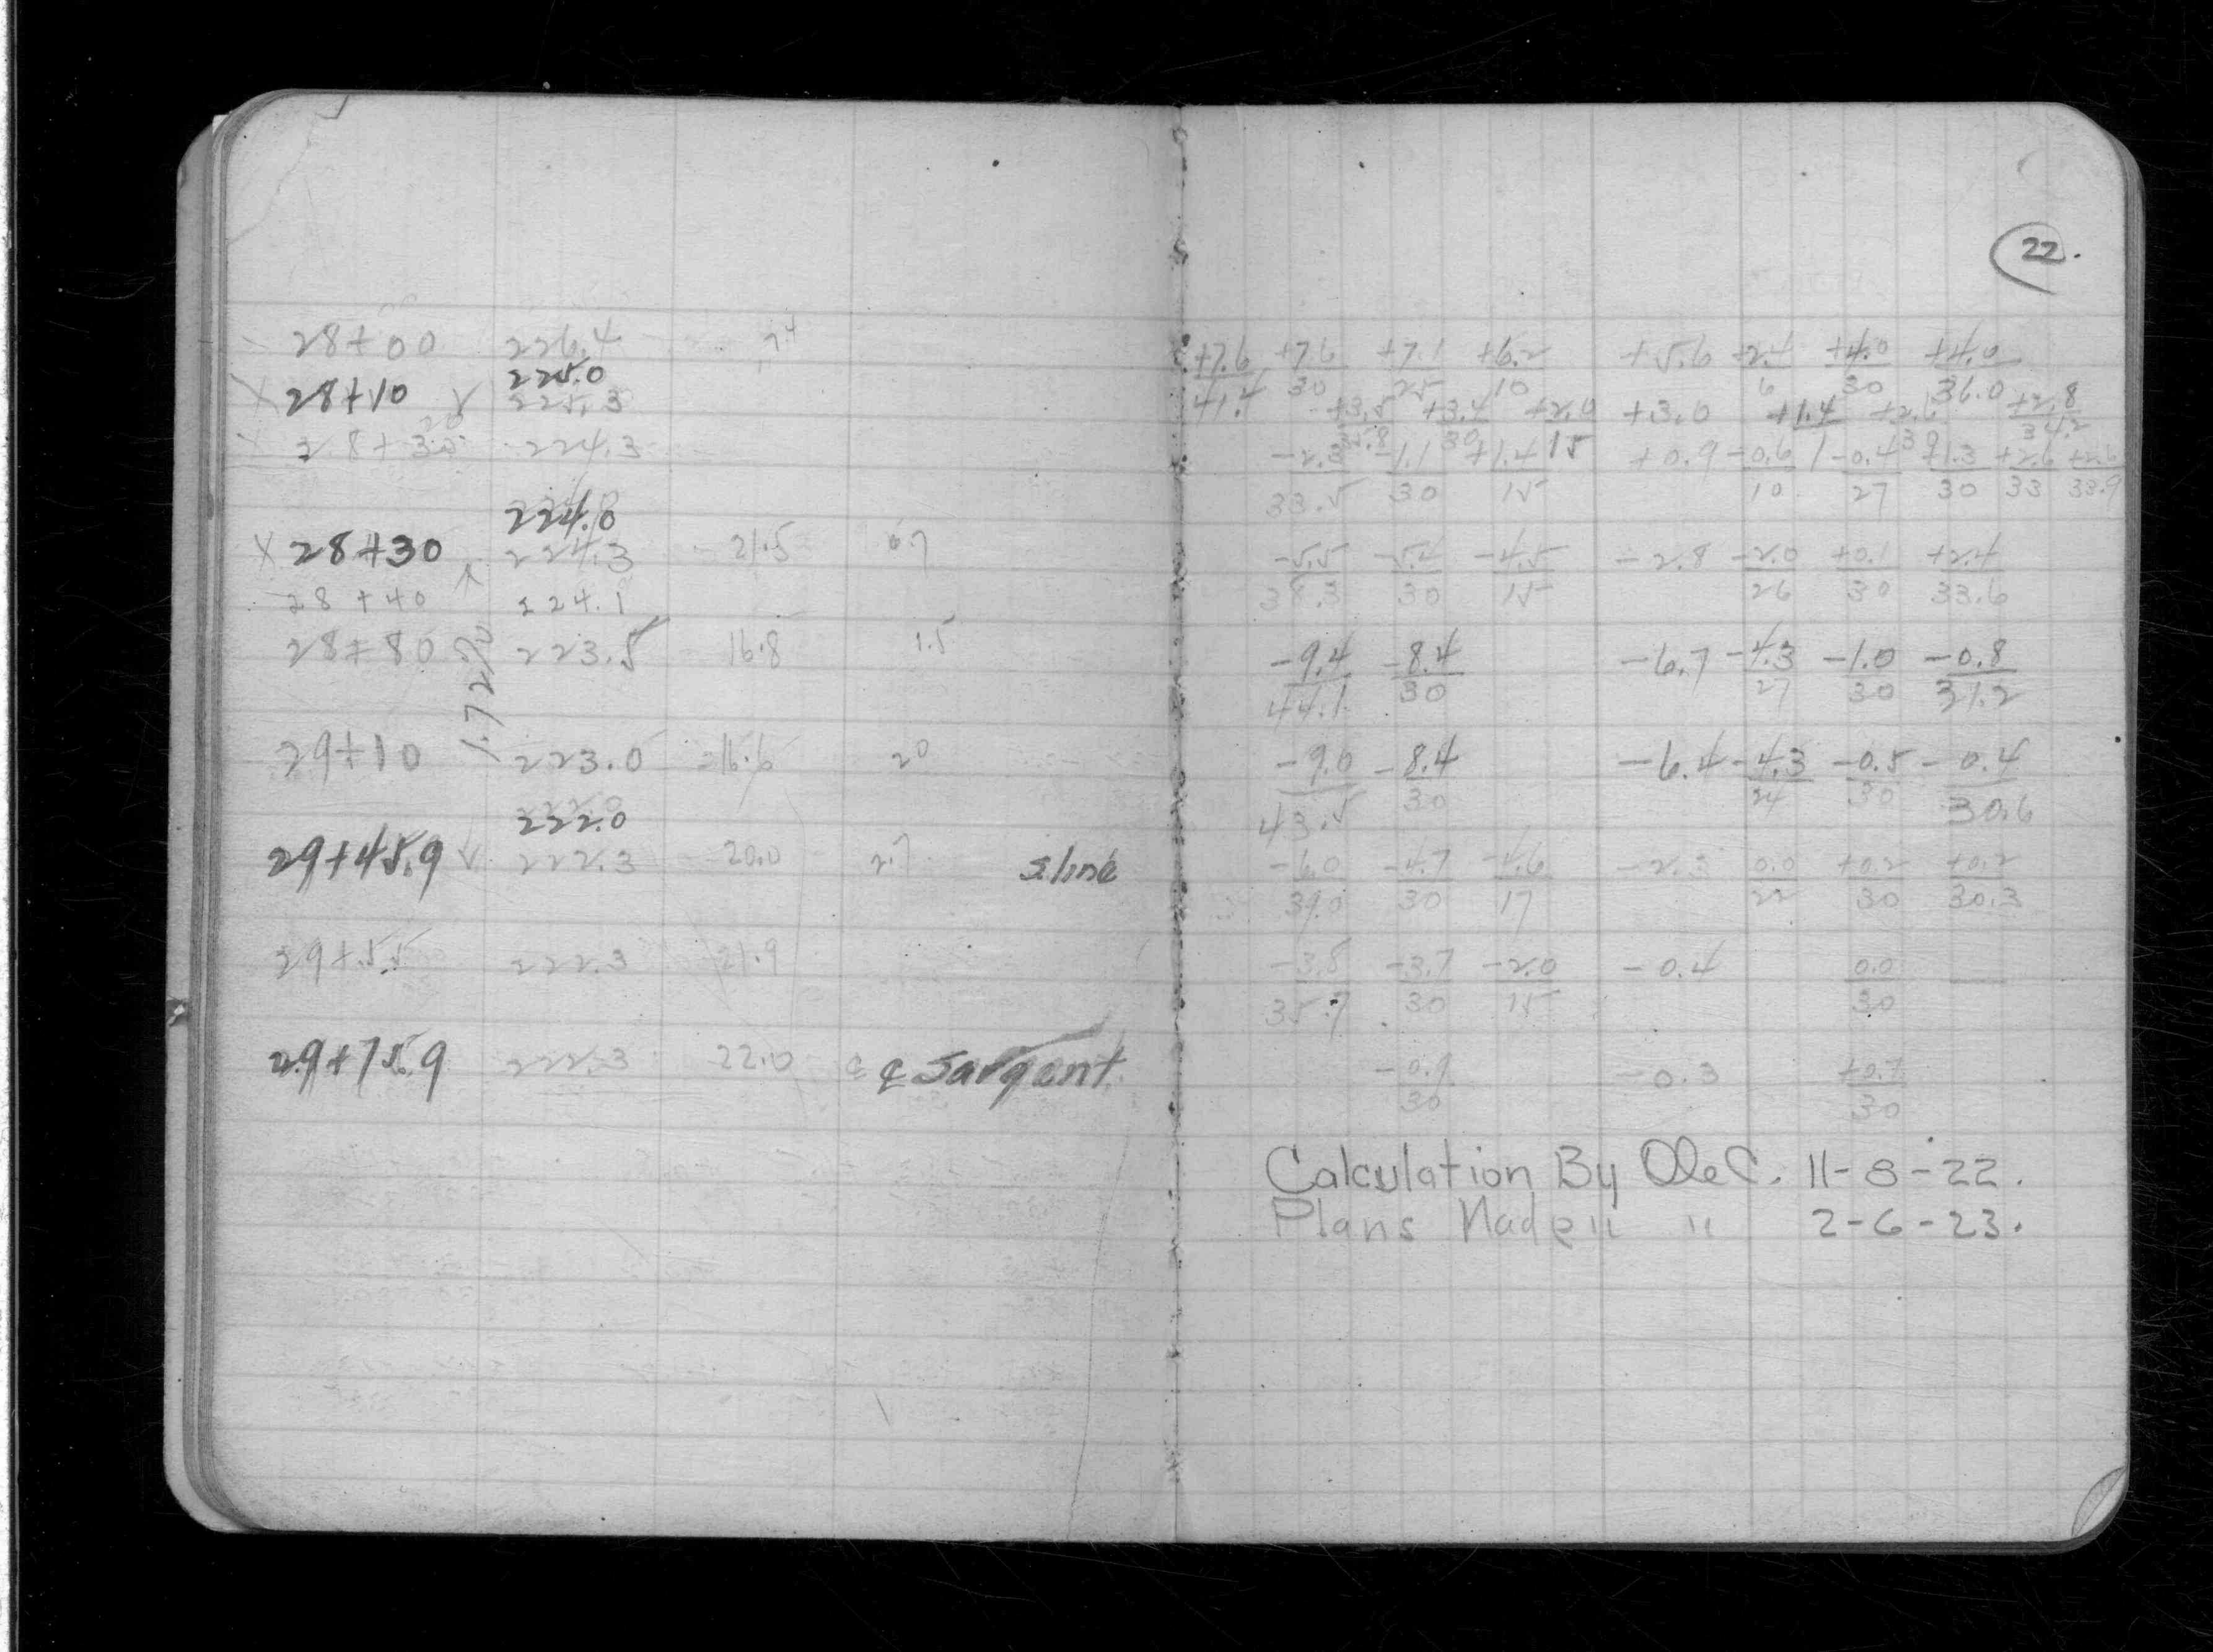 22.
28+00 226.4
225.0
28+10
28+30 224.3
224.0
X 28+30 224.3 21.5 6.7
28+40 224.1
28+80 223.5 16.8 1.5
1.72%
29+10 223.0 16.6 20
222.0
29+45.9 222.3 20.0 2.7 S. line
29+55 222.3 21.9
29+75.9 222.3 22.0 ¢ Sargent
+7.6 +7.6 +7.1 +6.2 +5.6 +4.0 +4.0
41.4 30 25 10 6 30 36.0
+3.5 +3.4 +2.0 +3.0 +1.4 +2.8
30 15 34.2
-2.3 -1.1 +1.4 +0.9 -0.6 -0.4 +1.3 +2.6 +2.6
33.5 30 15 10 27 30 33 33.9
-5.5 -5.2 -4.5 -2.8 -2.0 +0.1 +2.4
38.3 30 15 26 30 33.6
-9.4 -8.4 -6.7 -4.3 -1.0 -0.8
44.1 30 27 30 31.2
-9.0 -8.4 -6.4 -4.3 -0.5 -0.4
43.5 30 24 30 30.6
-6.0 -4.7 -4.6 -2.3 0.0 +0.2 +0.2
39.0 30 17 22 30 30.3
-3.8 -3.7 -2.0 -0.4 0.0
35.7 30 15 30
-0.9 -0.3 +0.7
30 30
Calculation By 11-8-22.
Plans Made " " 2-6-23.